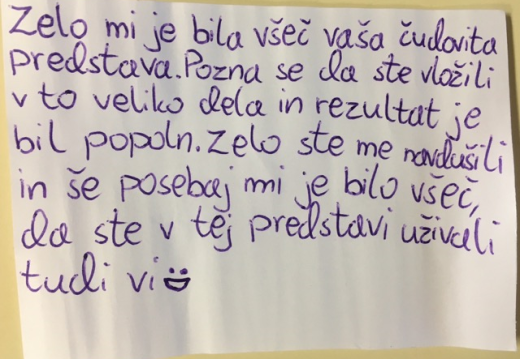 Zelo mi je bila všeč vaša čudovita
predstava. Pozna se da ste vložili
v to veliko dela in rezultat je
bil popoln. Zelo ste me navdušili
in še posebaj mi je bilo všeč,
da ste v tej predstavi uživali
tudi vi